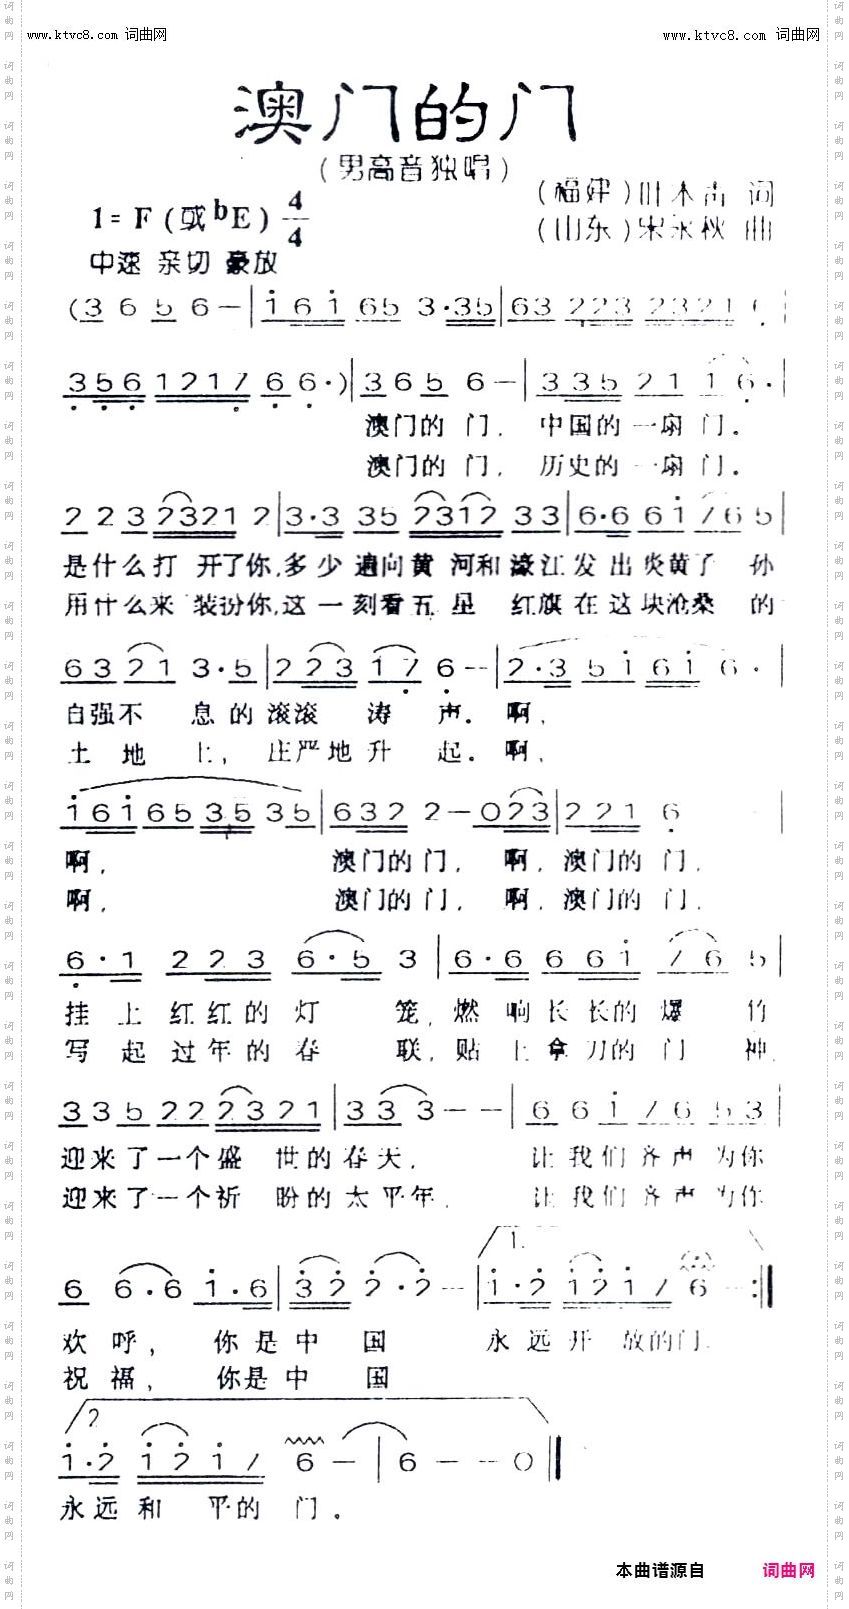 www.ktvc8.com 词曲网 www.ktvc8.com 词曲网
澳门的门
(男高音独唱)
(福建)叶木青 词
1=F(或bE) 4/4
(山东)宋永秋 曲
中速 亲切 豪放
(3 6 5 6 - | 1 6 1 65 3·35 | 63 223 2321 6
356 1217 6 6·) | 3 6 5 6 - | 335 21 1 6·
澳门的 门, 中国的一扇门。
澳门的 门, 历史的一扇门。
2 2 3 2321 2 | 3·3 35 2312 33 | 6·6 61 76 5
是什么打 开了你,多少遍向黄 河和濠江发出炎黄子 孙
用什么来 装扮你,这一刻看五星 红旗在这块沧桑 的
63 21 3·5 | 2 23 17 6 - - | 2·3 51 61 6·
自强不 息的滚滚 涛 声。啊,
土地 上, 庄严地升 起。啊,
161 65 35 35 | 632 2 - 023 | 221 6
啊, 澳门的门, 啊,澳门的门,
啊, 澳门的门, 啊,澳门的门,
6·1 2 23 6·5 3 | 6·6 661 76 5
挂上红红的灯 笼,燃响长长的爆 竹
写起过年的春 联,贴上拿刀的门 神,
335 222321 | 33 3 - - | 661 76 53
迎来了一个盛 世的春天, 让我们齐声为你
迎来了一个祈 盼的太平年, 让我们齐声为你
1.
6 6·6 1·6 | 32 2·2 - - | 1·2 1217 6 - - :‖
欢呼, 你是中 国 永远开 放的门.
祝福, 你是中 国
2
1·2 1217 6 - | 6 - - 0 ‖
永远和 平的 门。
本曲谱源自 词曲网